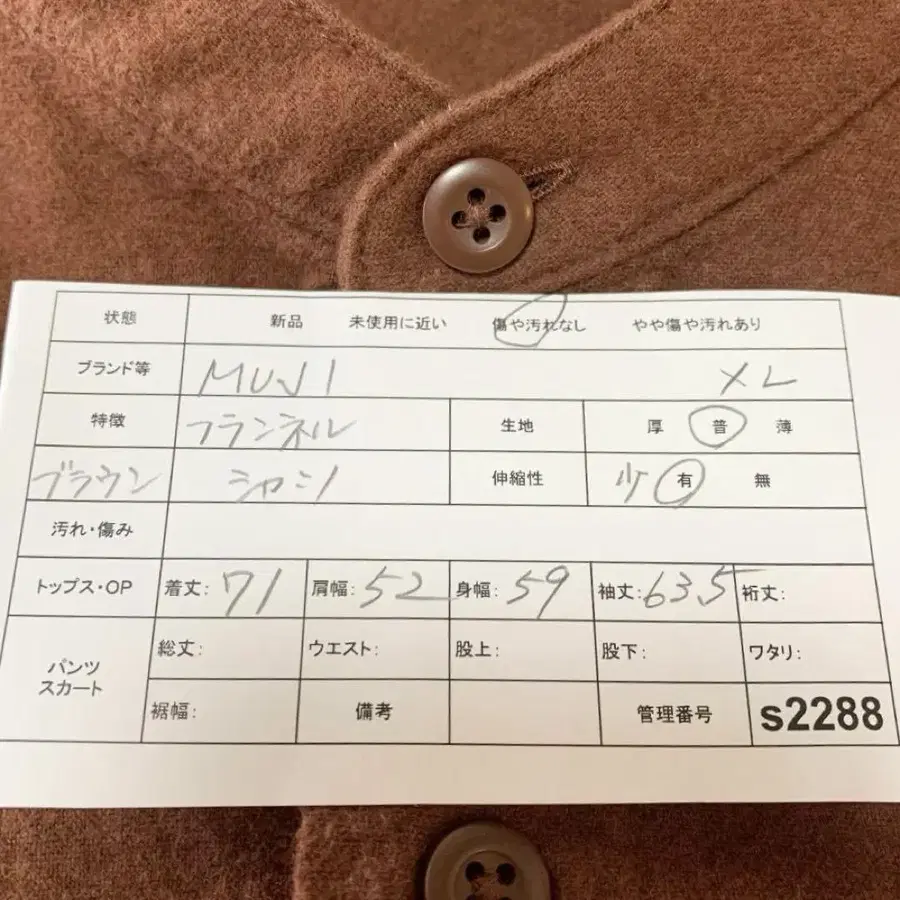 状態 新品 未使用に近い 傷や汚れなし やや傷や汚れあり
ブランド等 MUJI XL
特徴 フランネル 生地 厚 普 薄
ブラウン シャツ 伸縮性 少 有 無
汚れ・傷み
トップス・OP 着丈: 71 肩幅: 52 身幅: 59 袖丈: 63.5 裄丈:
パンツ スカート 総丈: ウエスト: 股上: 股下: ワタリ:
裾幅: 備考 管理番号 s2288